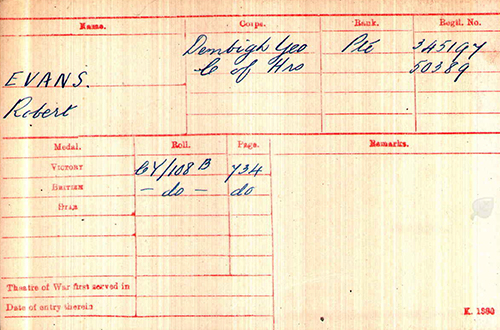 Name. Corps. Rank. Regtl. No.
Denbigh Yeo Pte 345197
C of Hrs 50389
EVANS.
Robert
Medal. Roll. Page. Remarks.
VICTORY CY/108 B 734
BRITISH - do - do
STAR
Theatre of War first served in
Date of entry therein
K. 1380